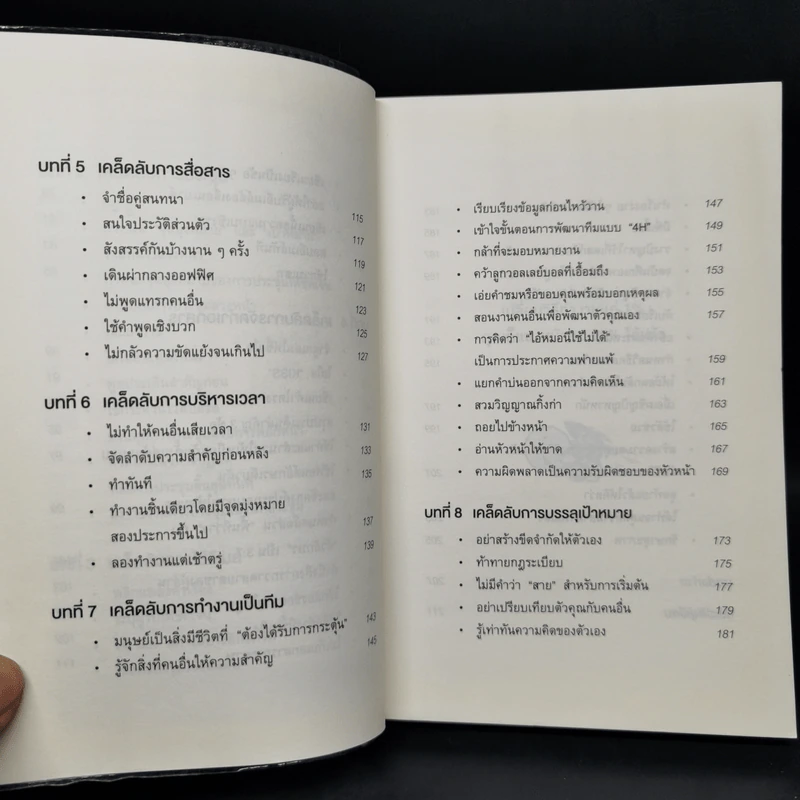 บทที่ 5 เคล็ดลับการสื่อสาร
• จำชื่อคู่สนทนา 115
• สนใจประวัติส่วนตัว 117
• สังสรรค์กันบ้างนาน ๆ ครั้ง 119
• เดินผ่ากลางออฟฟิศ 121
• ไม่พูดแทรกคนอื่น 123
• ใช้คำพูดเชิงบวก 125
• ไม่กลัวความขัดแย้งจนเกินไป 127
บทที่ 6 เคล็ดลับการบริหารเวลา
• ไม่ทำให้คนอื่นเสียเวลา 131
• จัดลำดับความสำคัญก่อนหลัง 133
• ทำทันที 135
• ทำงานชิ้นเดียวโดยมีจุดมุ่งหมาย
สองประการขึ้นไป 137
• ลองทำงานแต่เช้าตรู่ 139
บทที่ 7 เคล็ดลับการทำงานเป็นทีม
• มนุษย์เป็นสิ่งมีชีวิตที่ “ต้องได้รับการกระตุ้น” 143
• รู้จักสิ่งที่คนอื่นให้ความสำคัญ 145
• เรียบเรียงข้อมูลก่อนไหว้วาน 147
• เข้าใจขั้นตอนการพัฒนาทีมแบบ “4H” 149
• กล้าที่จะมอบหมายงาน 151
• คว้าลูกวอลเลย์บอลที่เอื้อมถึง 153
• เอ่ยคำชมหรือขอบคุณพร้อมบอกเหตุผล 155
• สอนงานคนอื่นเพื่อพัฒนาตัวคุณเอง 157
• การคิดว่า “ไอ้หมอนี่ใช้ไม่ได้”
เป็นการประกาศความพ่ายแพ้ 159
• แยกคำบ่นออกจากความคิดเห็น 161
• สวมวิญญาณกิ้งก่า 163
• ถอยไปข้างหน้า 165
• อ่านหัวหน้าให้ขาด 167
• ความผิดพลาดเป็นความรับผิดชอบของหัวหน้า 169
บทที่ 8 เคล็ดลับการบรรลุเป้าหมาย
• อย่าสร้างขีดจำกัดให้ตัวเอง 173
• ท้าทายกฎระเบียบ 175
• ไม่มีคำว่า “สาย” สำหรับการเริ่มต้น 177
• อย่าเปรียบเทียบตัวคุณกับคนอื่น 179
• รู้เท่าทันความคิดของตัวเอง 181